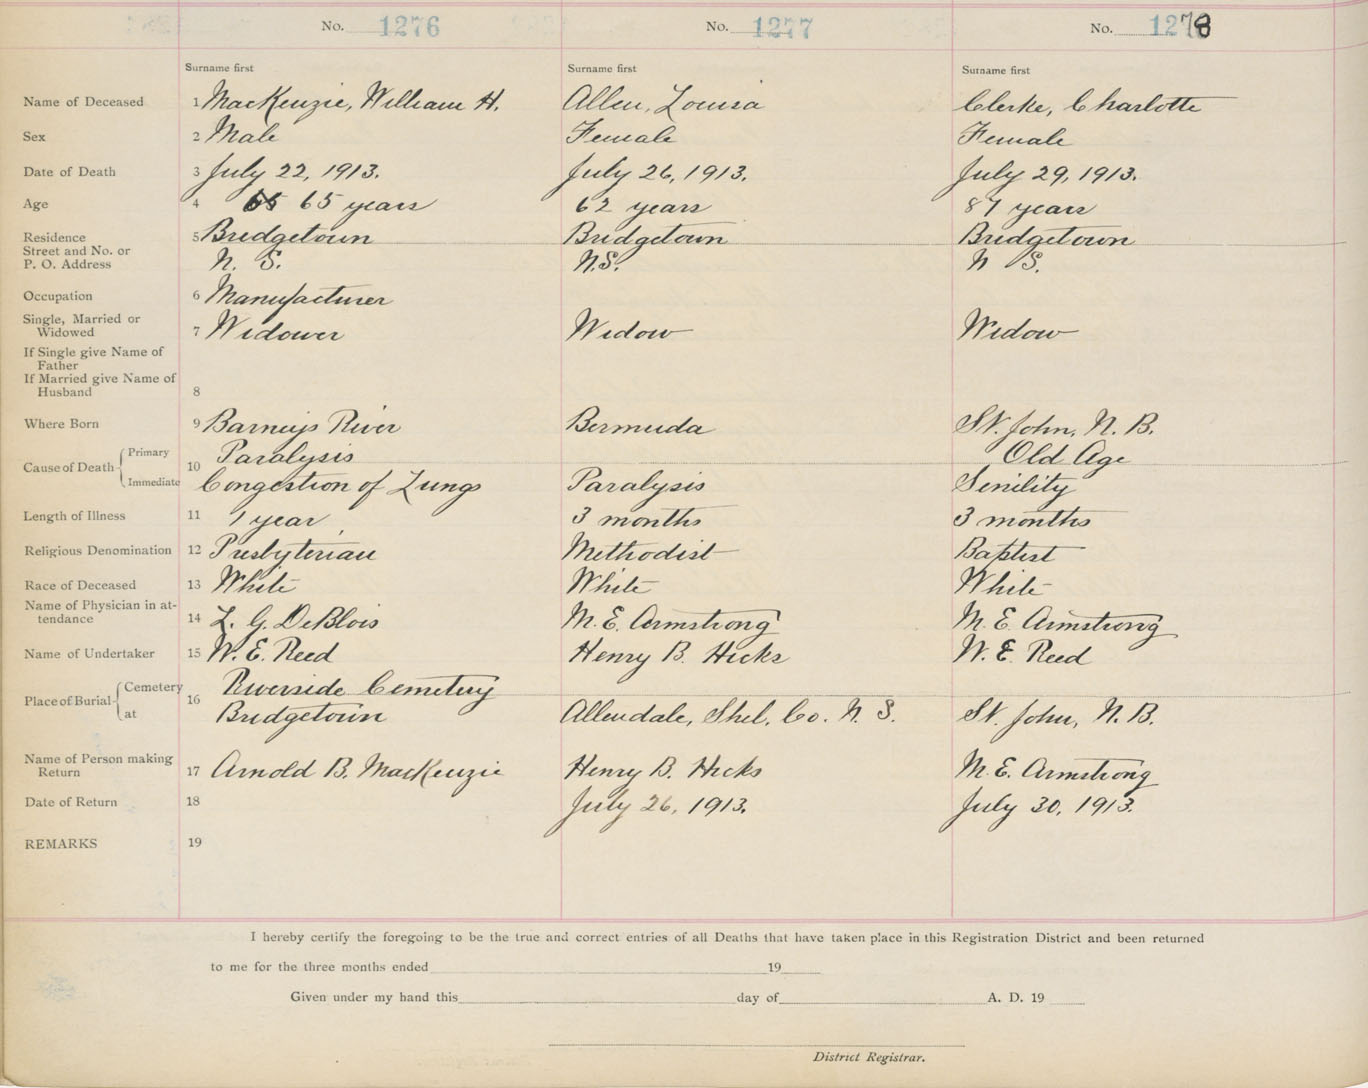 No. 1276 No. 1277 No. 1278
Surname first Surname first Surname first
Name of Deceased 1 MacKenzie, William H. Allen, Louisa Clerke, Charlotte
Sex 2 Male Female Female
Date of Death 3 July 22, 1913. July 26, 1913. July 29, 1913.
Age 4 65 65 years 62 years 87 years
Residence 5 Bridgetown Bridgetown Bridgetown
Street and No. or
P. O. Address N. S. N.S. N S.
Occupation 6 Manufacturer
Single, Married or
Widowed 7 Widower Widow Widow
If Single give Name of
Father
If Married give Name of
Husband 8
Where Born 9 Barneys River Bermuda St. John, N. B.
Cause of Death Primary 10 Paralysis Old Age
Immediate Congestion of Lungs Paralysis Senility
Length of Illness 11 1 year 3 months 3 months
Religious Denomination 12 Presbyterian Methodist Baptist
Race of Deceased 13 White White White
Name of Physician in at-
tendance 14 L. G. DeBlois M. E. Armstrong M. E. Armstrong
Name of Undertaker 15 W. E. Reed Henry B. Hicks W. E. Reed
Place of Burial Cemetery 16 Riverside Cemetery
at Bridgetown Allendale, Shel. Co. N. S. St. John, N. B.
Name of Person making
Return 17 Arnold B. MacKenzie Henry B. Hicks M. E. Armstrong
Date of Return 18 July 26, 1913. July 30, 1913.
REMARKS 19
I hereby certify the foregoing to be the true and correct entries of all Deaths that have taken place in this Registration District and been returned
to me for the three months ended 19
Given under my hand this day of A. D. 19
District Registrar.